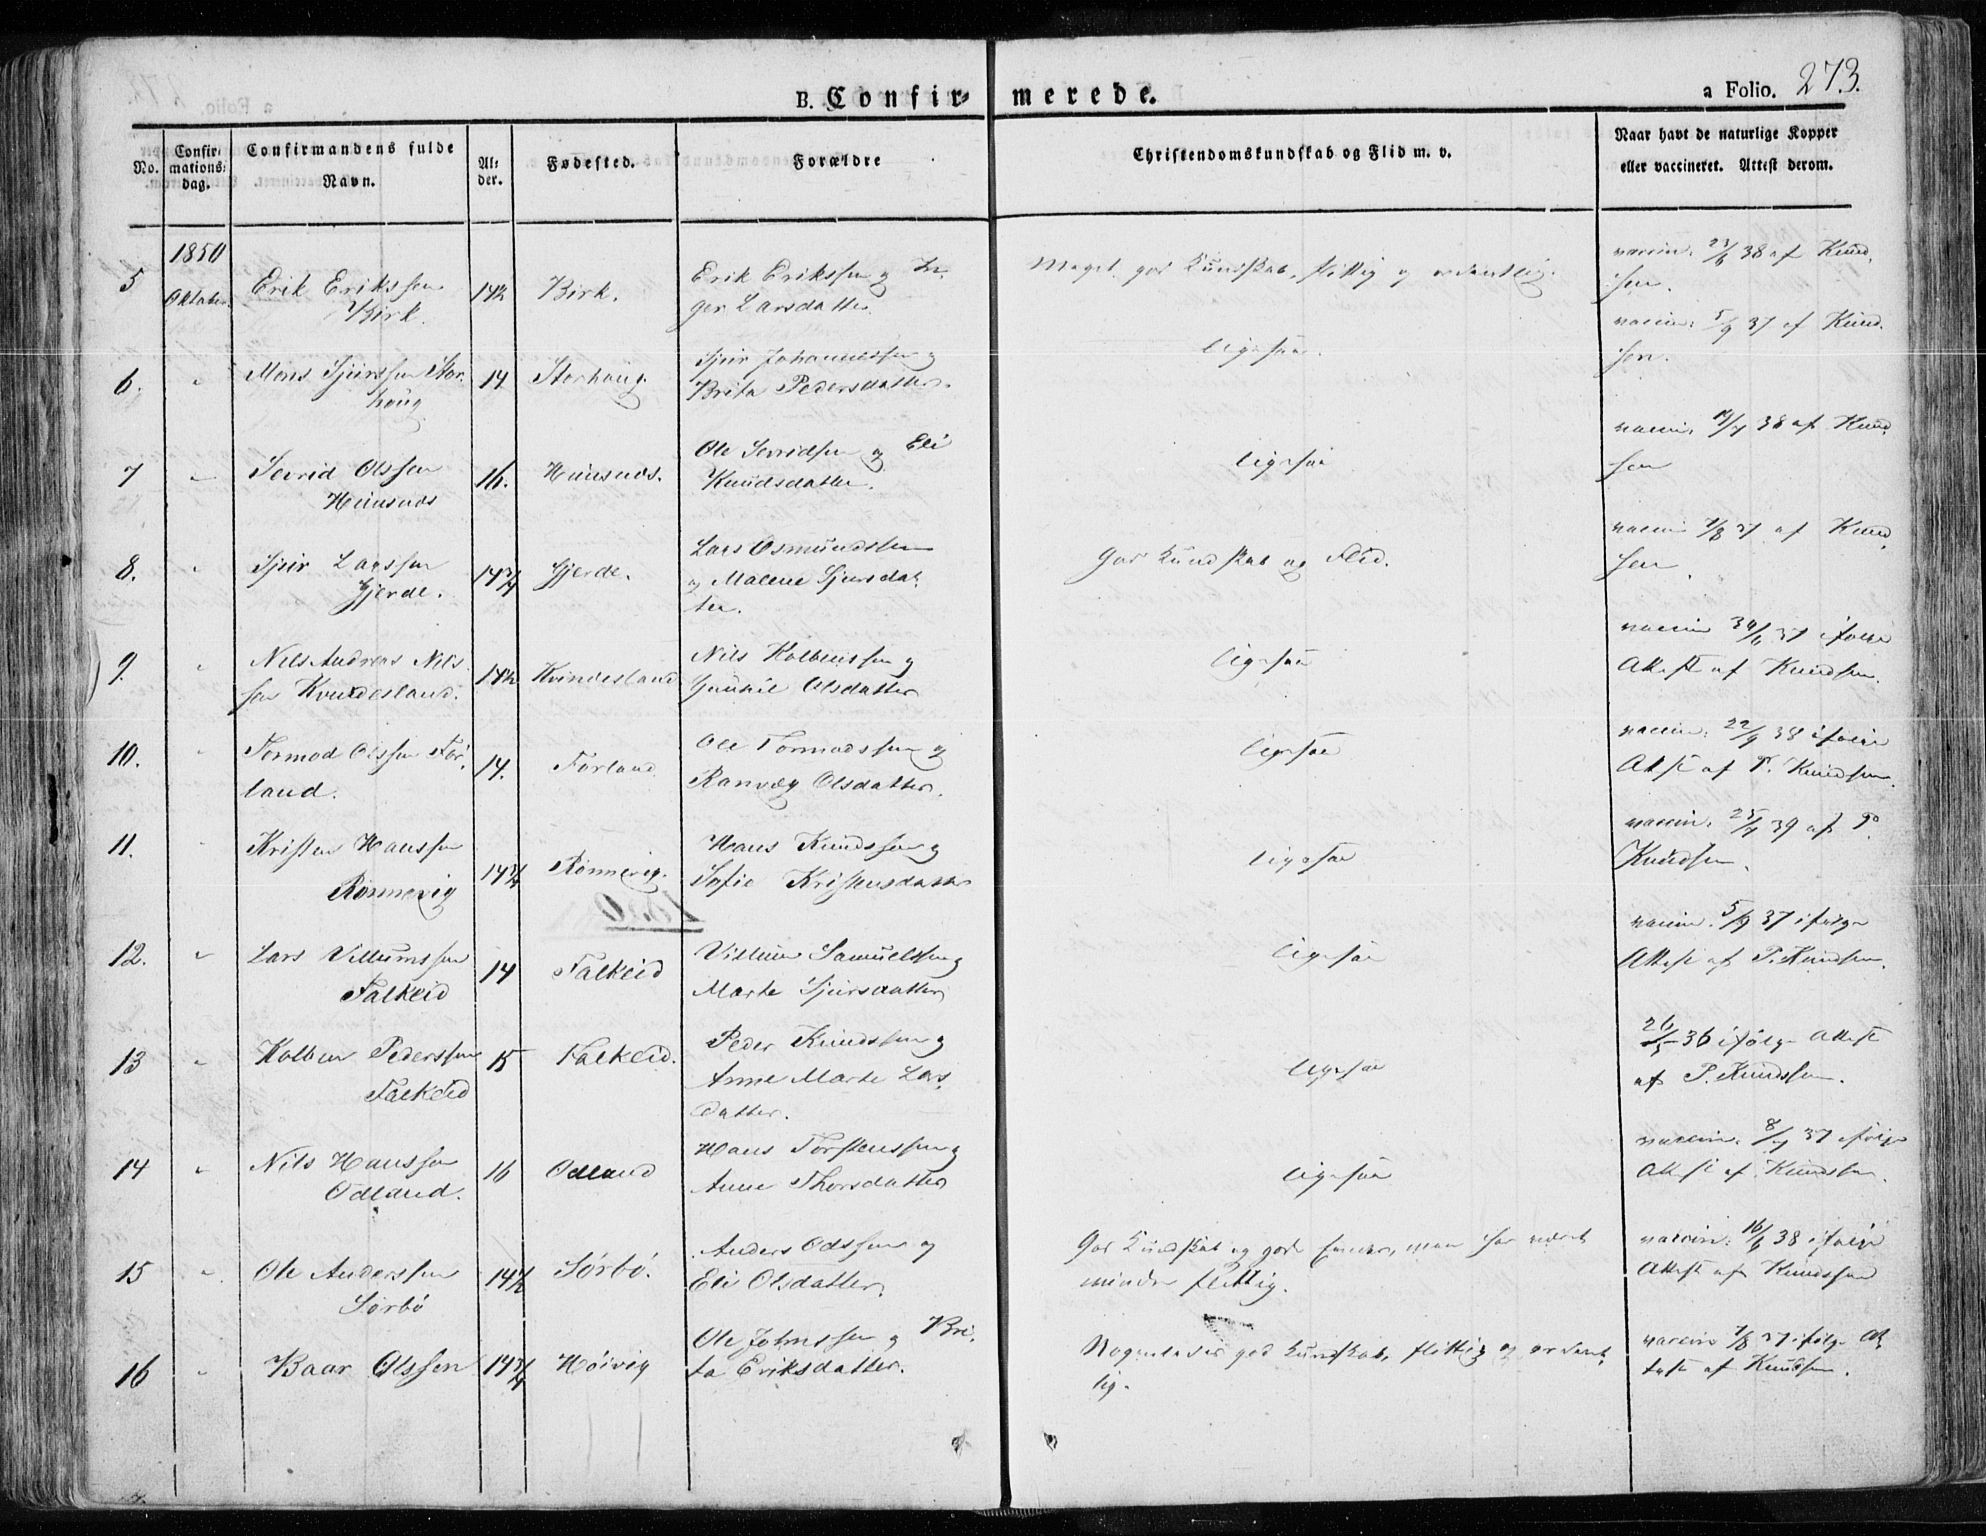 B. Confir- merede.
a Folio. 273.
No.
Confir-
mations-
dag.
Confirmandens fulde
Navn.
Al-
der.
Fødested.
Forældre
Christendomskundskab og Flid m. v.
Naar havt de naturlige Kopper
eller vaccineret. Attest derom.
1850
Oktober
5 Erik Erikssen
Birk.
14½ Birk.
Erik Erikssen og In-
ger Larsdatter
Meget god Kundskab, flittig og ordentlig.
vaccin. 38 af Knud-
sen.
6. Mons Sjurssen Stor-
houg
14 Storhoug.
Sjur Johannessen og
Brita Pedersdatter.
ligesaa.
vaccin. 5/9 37 af Knud-
sen.
7 Sevrid Olssen
Huusnæs
16. Huusnæs.
Ole Sevridsen og Eli
Knudsdatter.
ligesaa
vaccin. 38 af Knud-
sen
8. Sjur Larssen
Gjerde.
14¾ Gjerde.
Lars Osmundssen
og Malene Sjursdat-
ter.
God Kundskab og Flid.
vaccin 37 af Knud-
sen
9. Nils Andreas Nils-
sen Kvindesland.
14½ Kvindesland
Nils Kolbenssen og
Gunhil Olsdatter
ligesaa
vaccin 37 ifølge
Attest af Knudsen.
10. Tormod Olssen Før-
land.
14. Førland
Ole Tormodssen og
Ranveig Olsdatter.
ligesaa
vaccin. 22/9 38 ifølge
Attest af P. Knudsen
11. Kristen Hanssen
Rønnevig
Rønnevig.
Hans Knudssen og
Sofie Kristensdatter
ligesaa
vaccin. 39 af P.
Knudsen.
12. Lars Villumssen
Falkeid
14 Falkeid
Villum Samuelsen og
Marte Sjursdatter
ligesaa
vaccin. 5/9 37 ifølge
Attest af P. Knudsen.
13 Kolben Pederssen
Falkeid
15 Falkeid.
Peder Knudssen og
Anne Marte Lars-
datter.
ligesaa
26/5 36 ifølge Attest
af P. Knudssen.
14 Nils Hanssen
Odland.
16 Odland
Hans Torstenssen og
Anne Thorsdatter
ligesaa
vaccin. 37 ifølge
Attest af Knudsen.
15 Ole Anderssen
Sørbø
14½ Sørbø.
Anders Odssen og
Eli Olsdatter.
God Kundskab og gode Evner, men har været
mindre flittig.
vaccin. 38 ifølge
Attest af Knudssen
16 Baar Olssen
14¾ Høivig
Ole Johnssen og Bri-
ta Eriksdatter.
Nogenledes god Kundskab, flittig og ordent-
lig.
vaccin 37 ifølge At-
test af Knudsen.